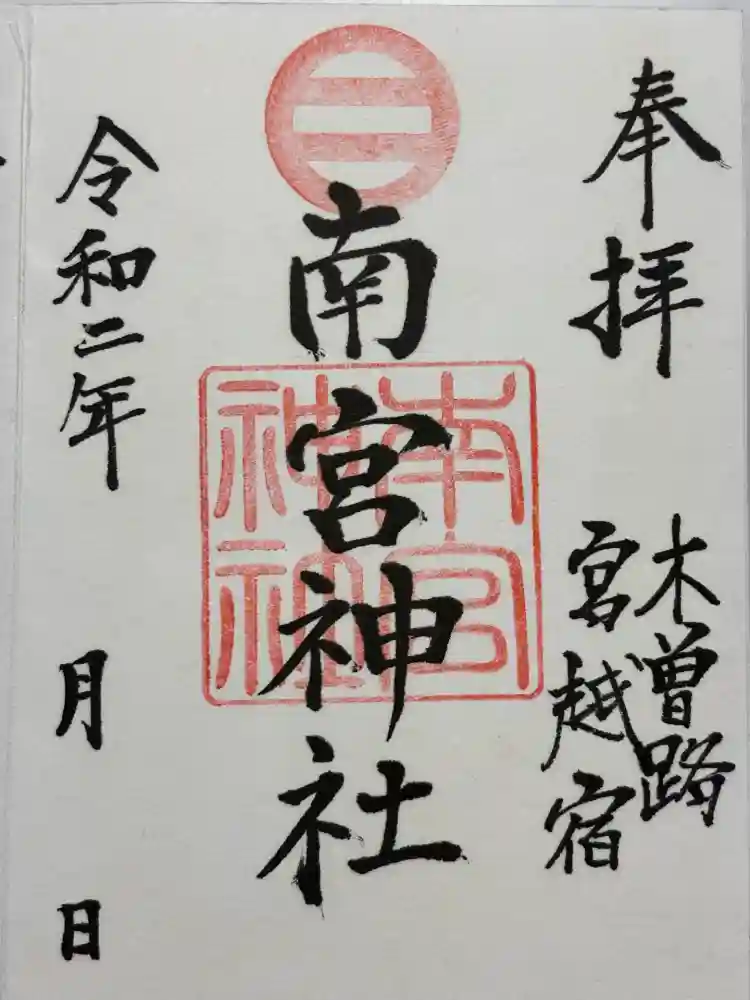 奉拝
木曽路
宮越宿
南宮神社
南宮神社
令和二年 月 日